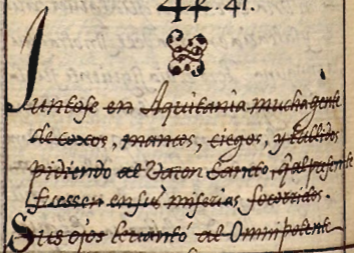 44. 41.
Juntose en Aquitania mucha gente
de coxos, mancos, ciegos, y tullidos
pidiendo al Varon Sancto, q̃ al presente
fuessen en sus miserias socorridos.
Sus ojos leuantó al Omnipotente